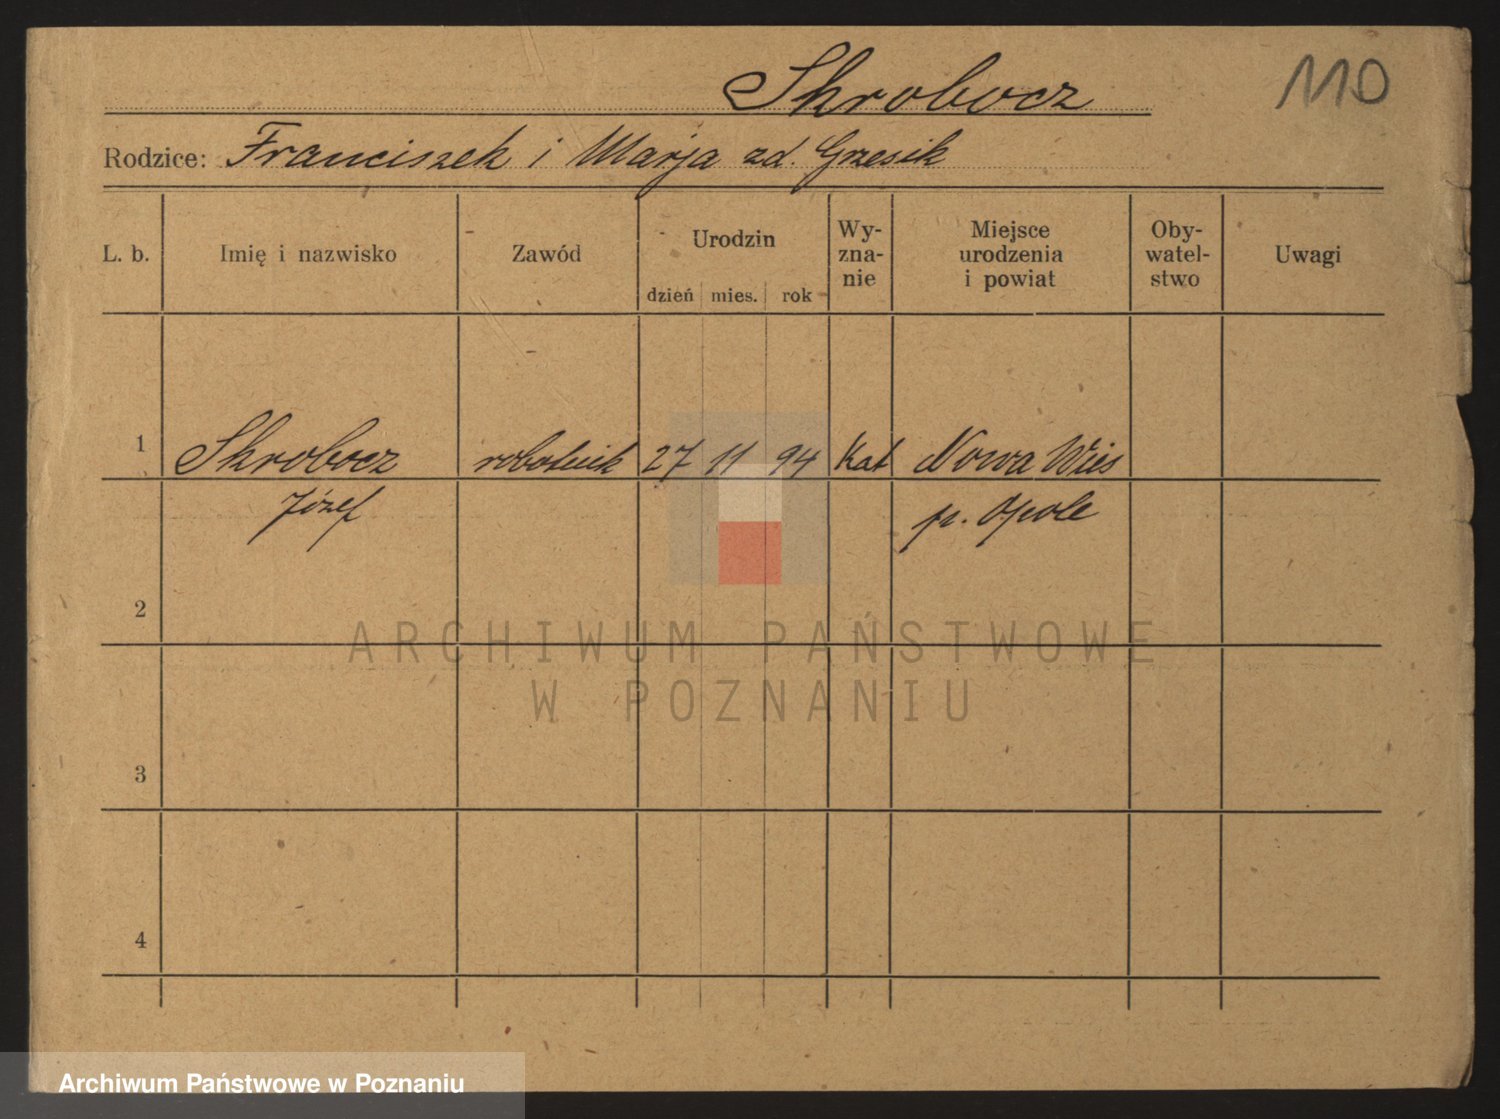 Skrobocz
110
Rodzice: Franciszek i Marja zd. Grzesik
L. b.
Imię i nazwisko
Zawód
Urodzin
dzień mies. rok
Wy-
zna-
nie
Miejsce
urodzenia
i powiat
Oby-
watel-
stwo
Uwagi
1 Skrobocz robotnik 27 11 94 Kat Nowa Wieś
Józef p. Opole
2
ARCHIWUM PAŃSTWOWE
W POZNANIU
3
4
Archiwum Państwowe w Poznaniu